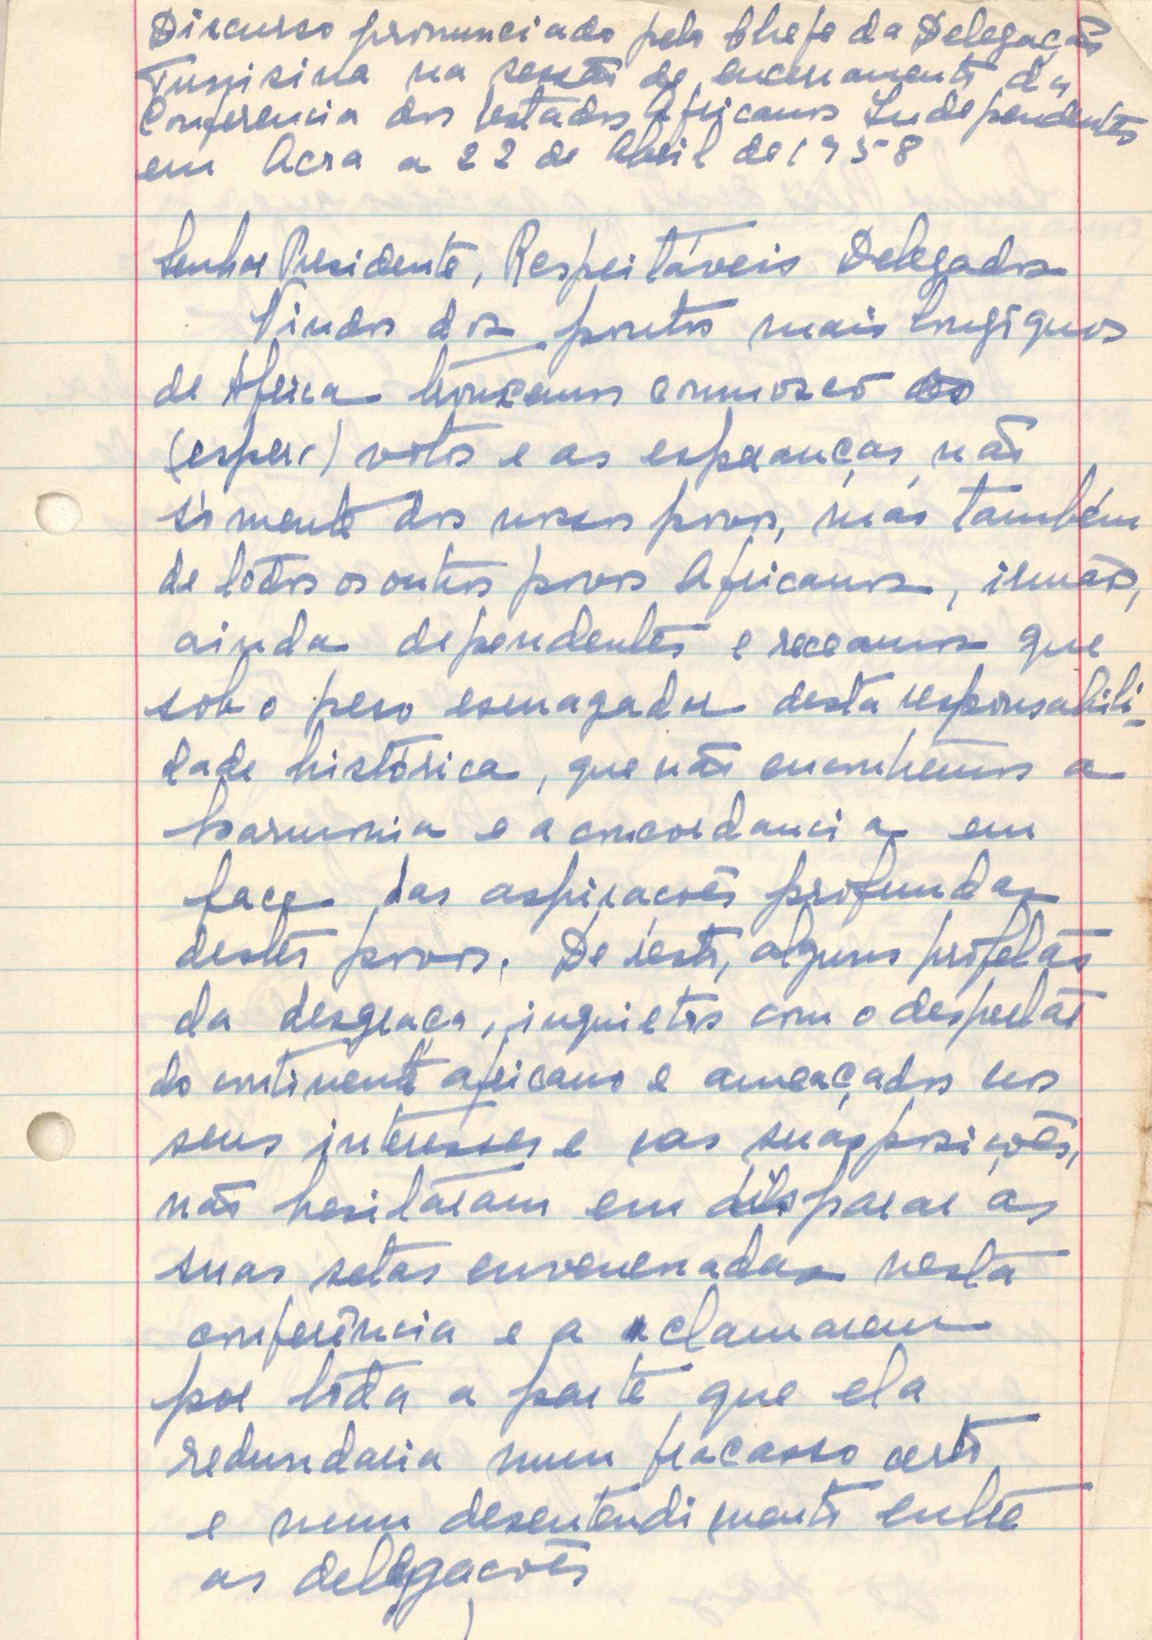 Discurso pronunciado pelo Chefe da Delegação
Tunisina na sessão de encerramento da
Conferencia dos Estados Africanos Independentes
em Acra a 22 de Abril de 1958
Senhor Presidente, Respeitáveis Delegados
Vindos dos pontos mais longíquos
de África trouxemos connosco os
(esper) votos e as esperanças não
sòmente dos nossos povos, mas também
de todos os outros povos Africanos, irmãos,
ainda dependentes e receamos que
sob o peso esmagador desta responsabili-
dade histórica, que não encontremos a
harmonia e a concordancia em
face das aspirações profundas
destes povos. De resto, alguns profetas
da desgraça, inquietos com o despertar
do continente africano e ameaçados nos
seus interesses e nas suas posições,
não hesitaram em disparar as
suas setas envenenadas nesta
conferência e a clamarem
por tôda a parte que ela
redundaria num fracasso certo
e num desentendimento entre
as delegações